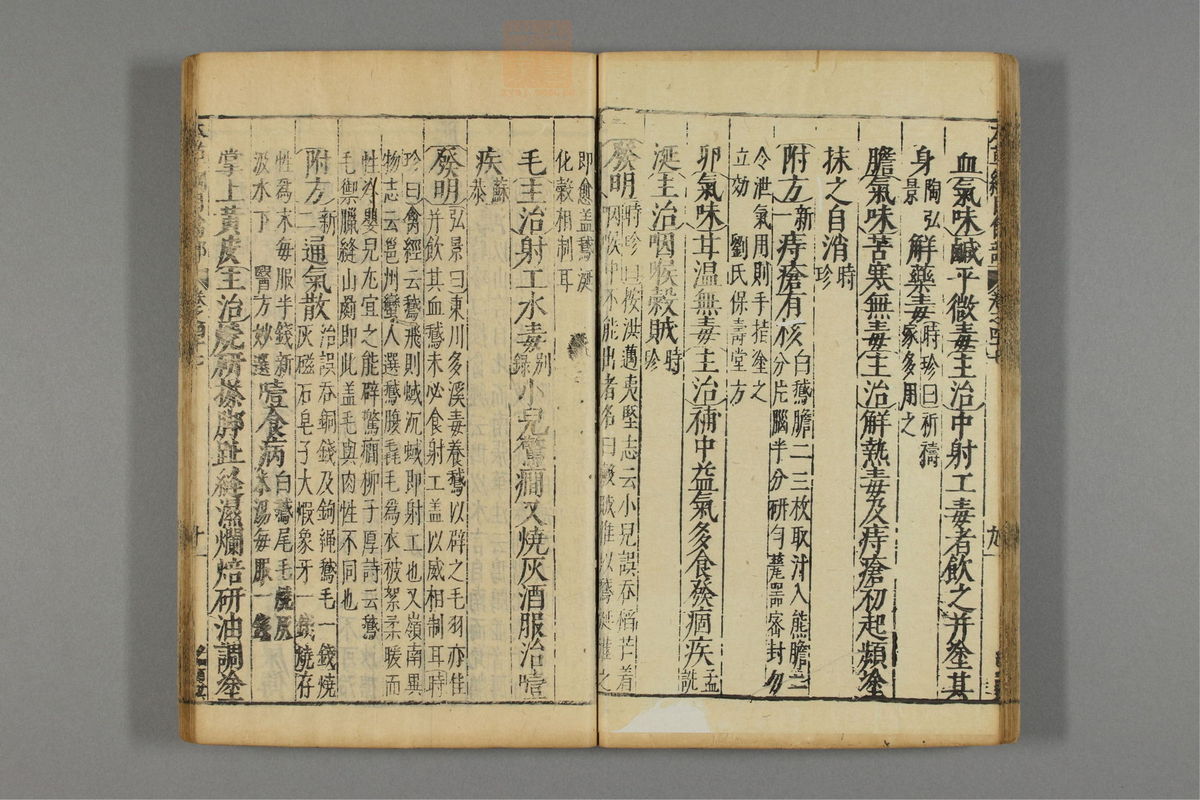 血氣味鹹平微毒主治中射工毒者飲之并塗其
身陶弘景解藥毒時珍曰祈禱家多用之
膽氣味苦寒無毒主治解熱毒及痔瘡初起頻塗
抹之自消時珍
附方新一痔瘡有核白鵝膽二三枚取汁入熊膽二
分片腦半分研勻瓷器密封勿
令泄氣用則手指塗之
立効　劉氏保壽堂方
卵氣味甘温無毒主治補中益氣多食發痼疾孟詵
涎主治咽喉穀賊時珍
發明時珍曰按洪邁夷堅志云小兒誤吞稻芒着
咽喉中不能出者名曰穀賊惟以鵝涎灌之
即愈盖鵝涎
化穀相制耳
毛主治射工水毒別錄小兒驚癎又燒灰酒服治噎
疾蘇恭
發明弘景曰東川多溪毒養鵝以辟之毛羽亦佳
并飲其血鵝未必食射工盖以威相制耳時
珍曰禽經云鵝飛則蜮沉蜮即射工也又嶺南異
物志云邕州蠻人選鵝腹毳毛爲衣被絮柔暖而
性冷嬰兒尤宜之能辟驚癎柳子厚詩云鵝
毛禦臘縫山罽即此盖毛與肉性不同也
附方新二通氣散治誤吞銅錢及鉤繩鵝毛一錢燒
灰磁石皂子大煆象牙一錢燒存
性爲末每服半錢新
汲水下　醫方妙選噎食病白鵝尾毛燒灰
米湯每服一錢
掌上黃皮主治燒研搽脚趾縫濕爛焙研油調塗